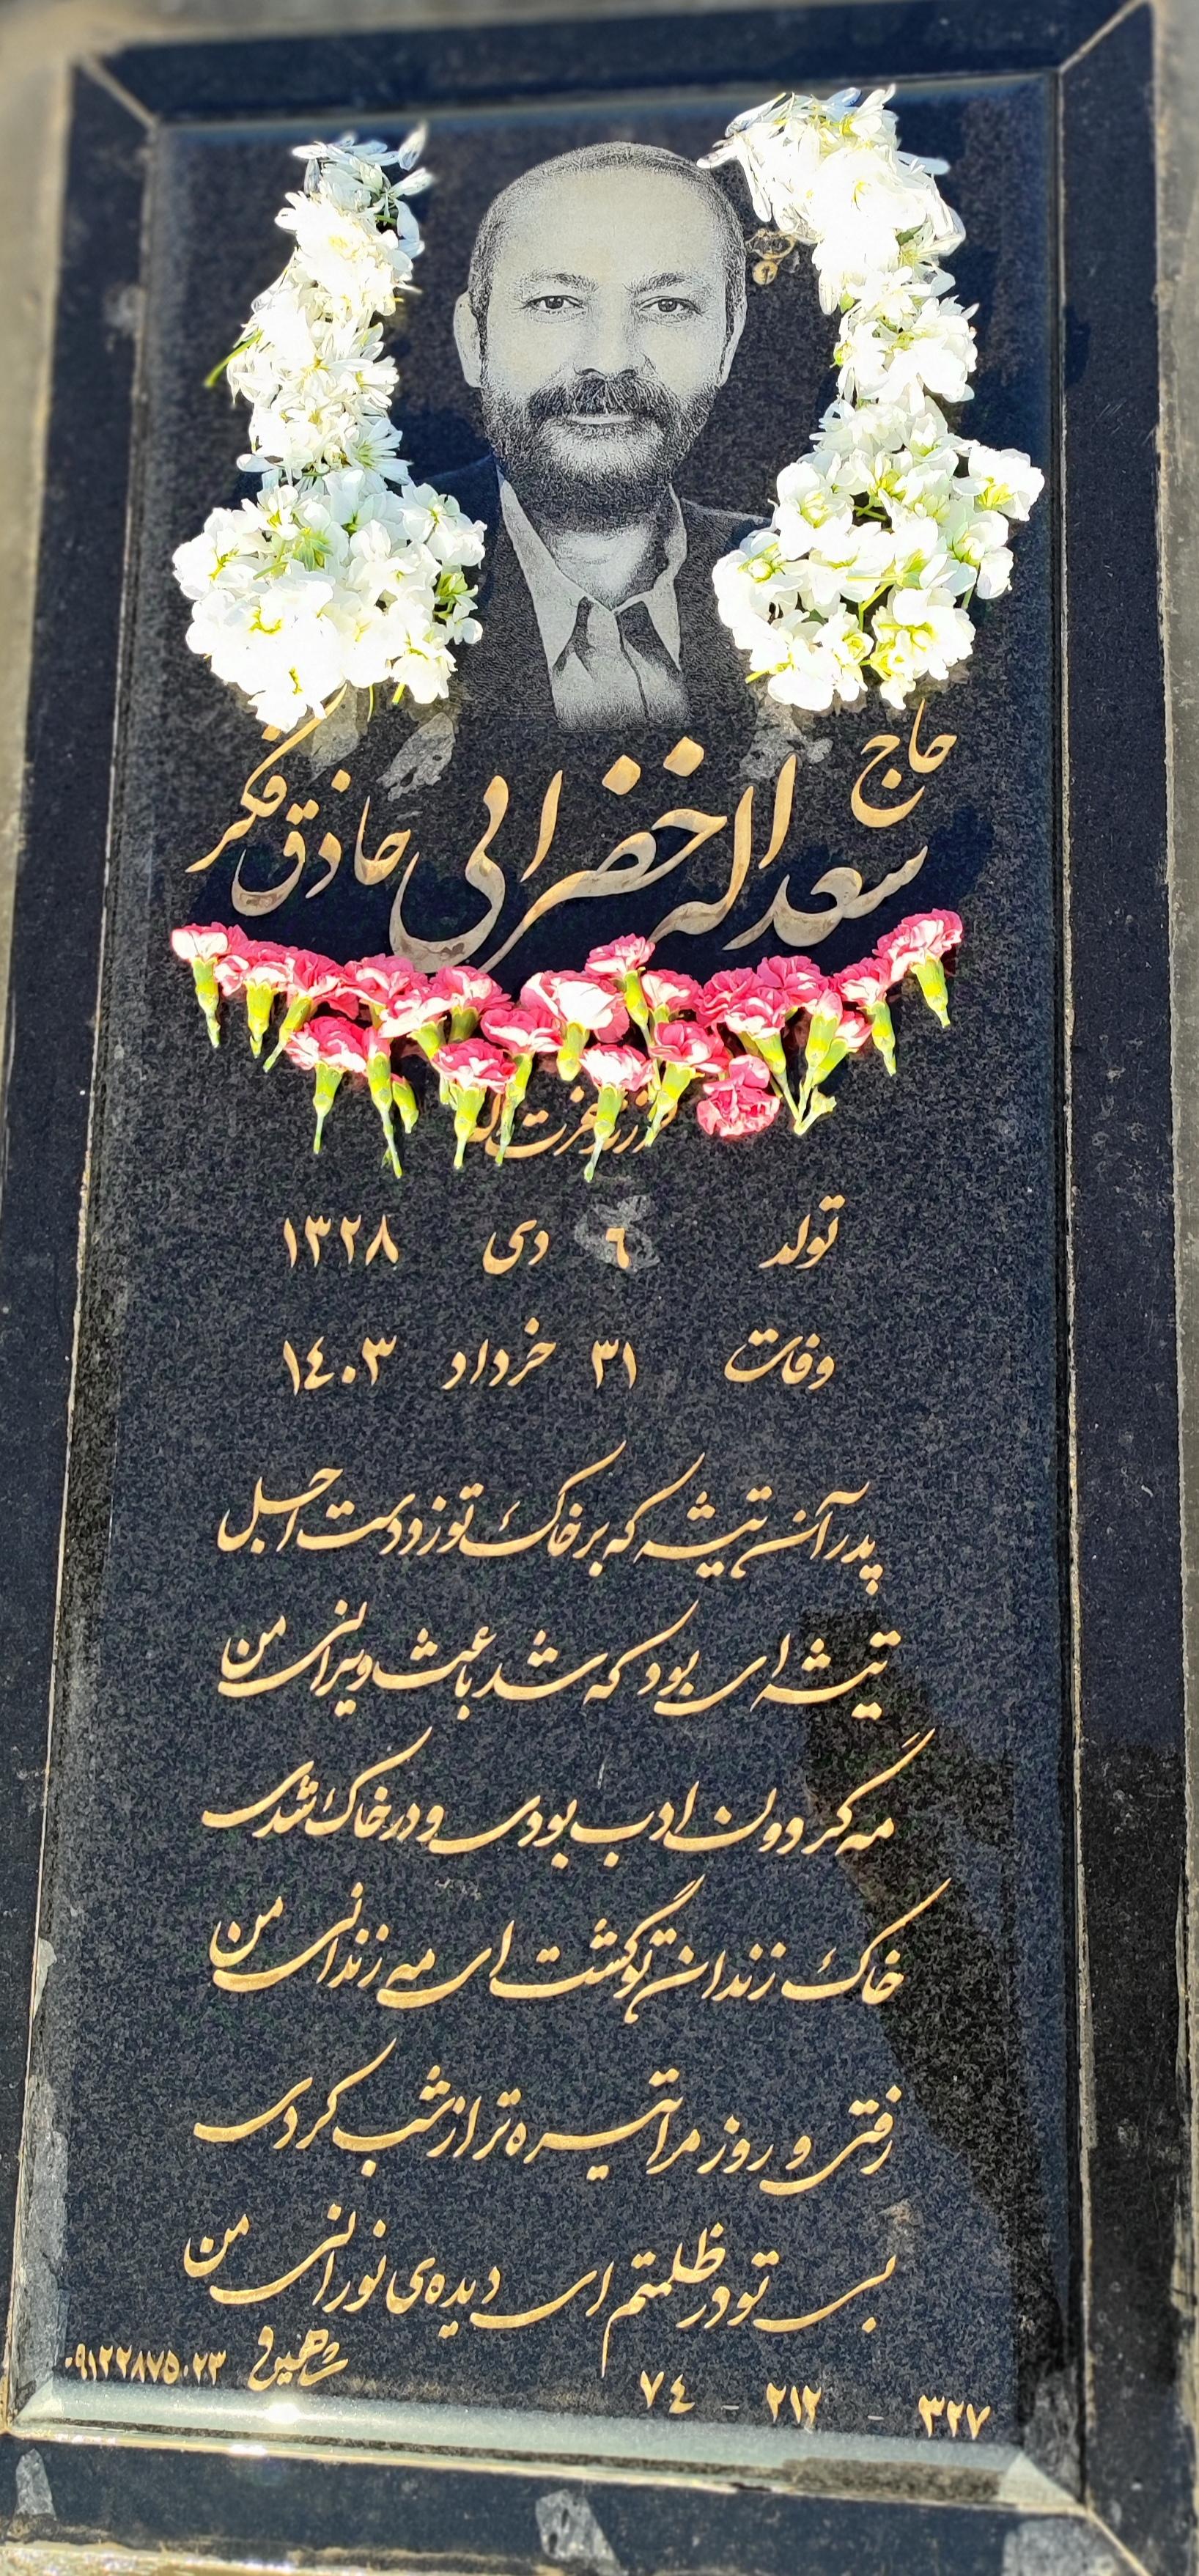 حاج
سعداله خضرابی حاذق فکر
فرزند عزت اله
تولد ٦ دی ۱۳۲۸
وفات ۳۱ خرداد ۱٤۰۳
پدر آن تیشه که بر خاک تو زد دست اجل
تیشه ای بود که شد باعث ویرانی من
مه گردون ادب بودی و در خاک شدی
خاک زندان تو گشت ای مه زندانی من
رفتی و روز مرا تیره تر از شب کردی
بی تو در ظلمتم ای دیده‌ی نورانی من
۳۲۷ - ۲۱۲ - ۷٤
شاهین ۰۹۱۲۲۸۷۵۰۲۳